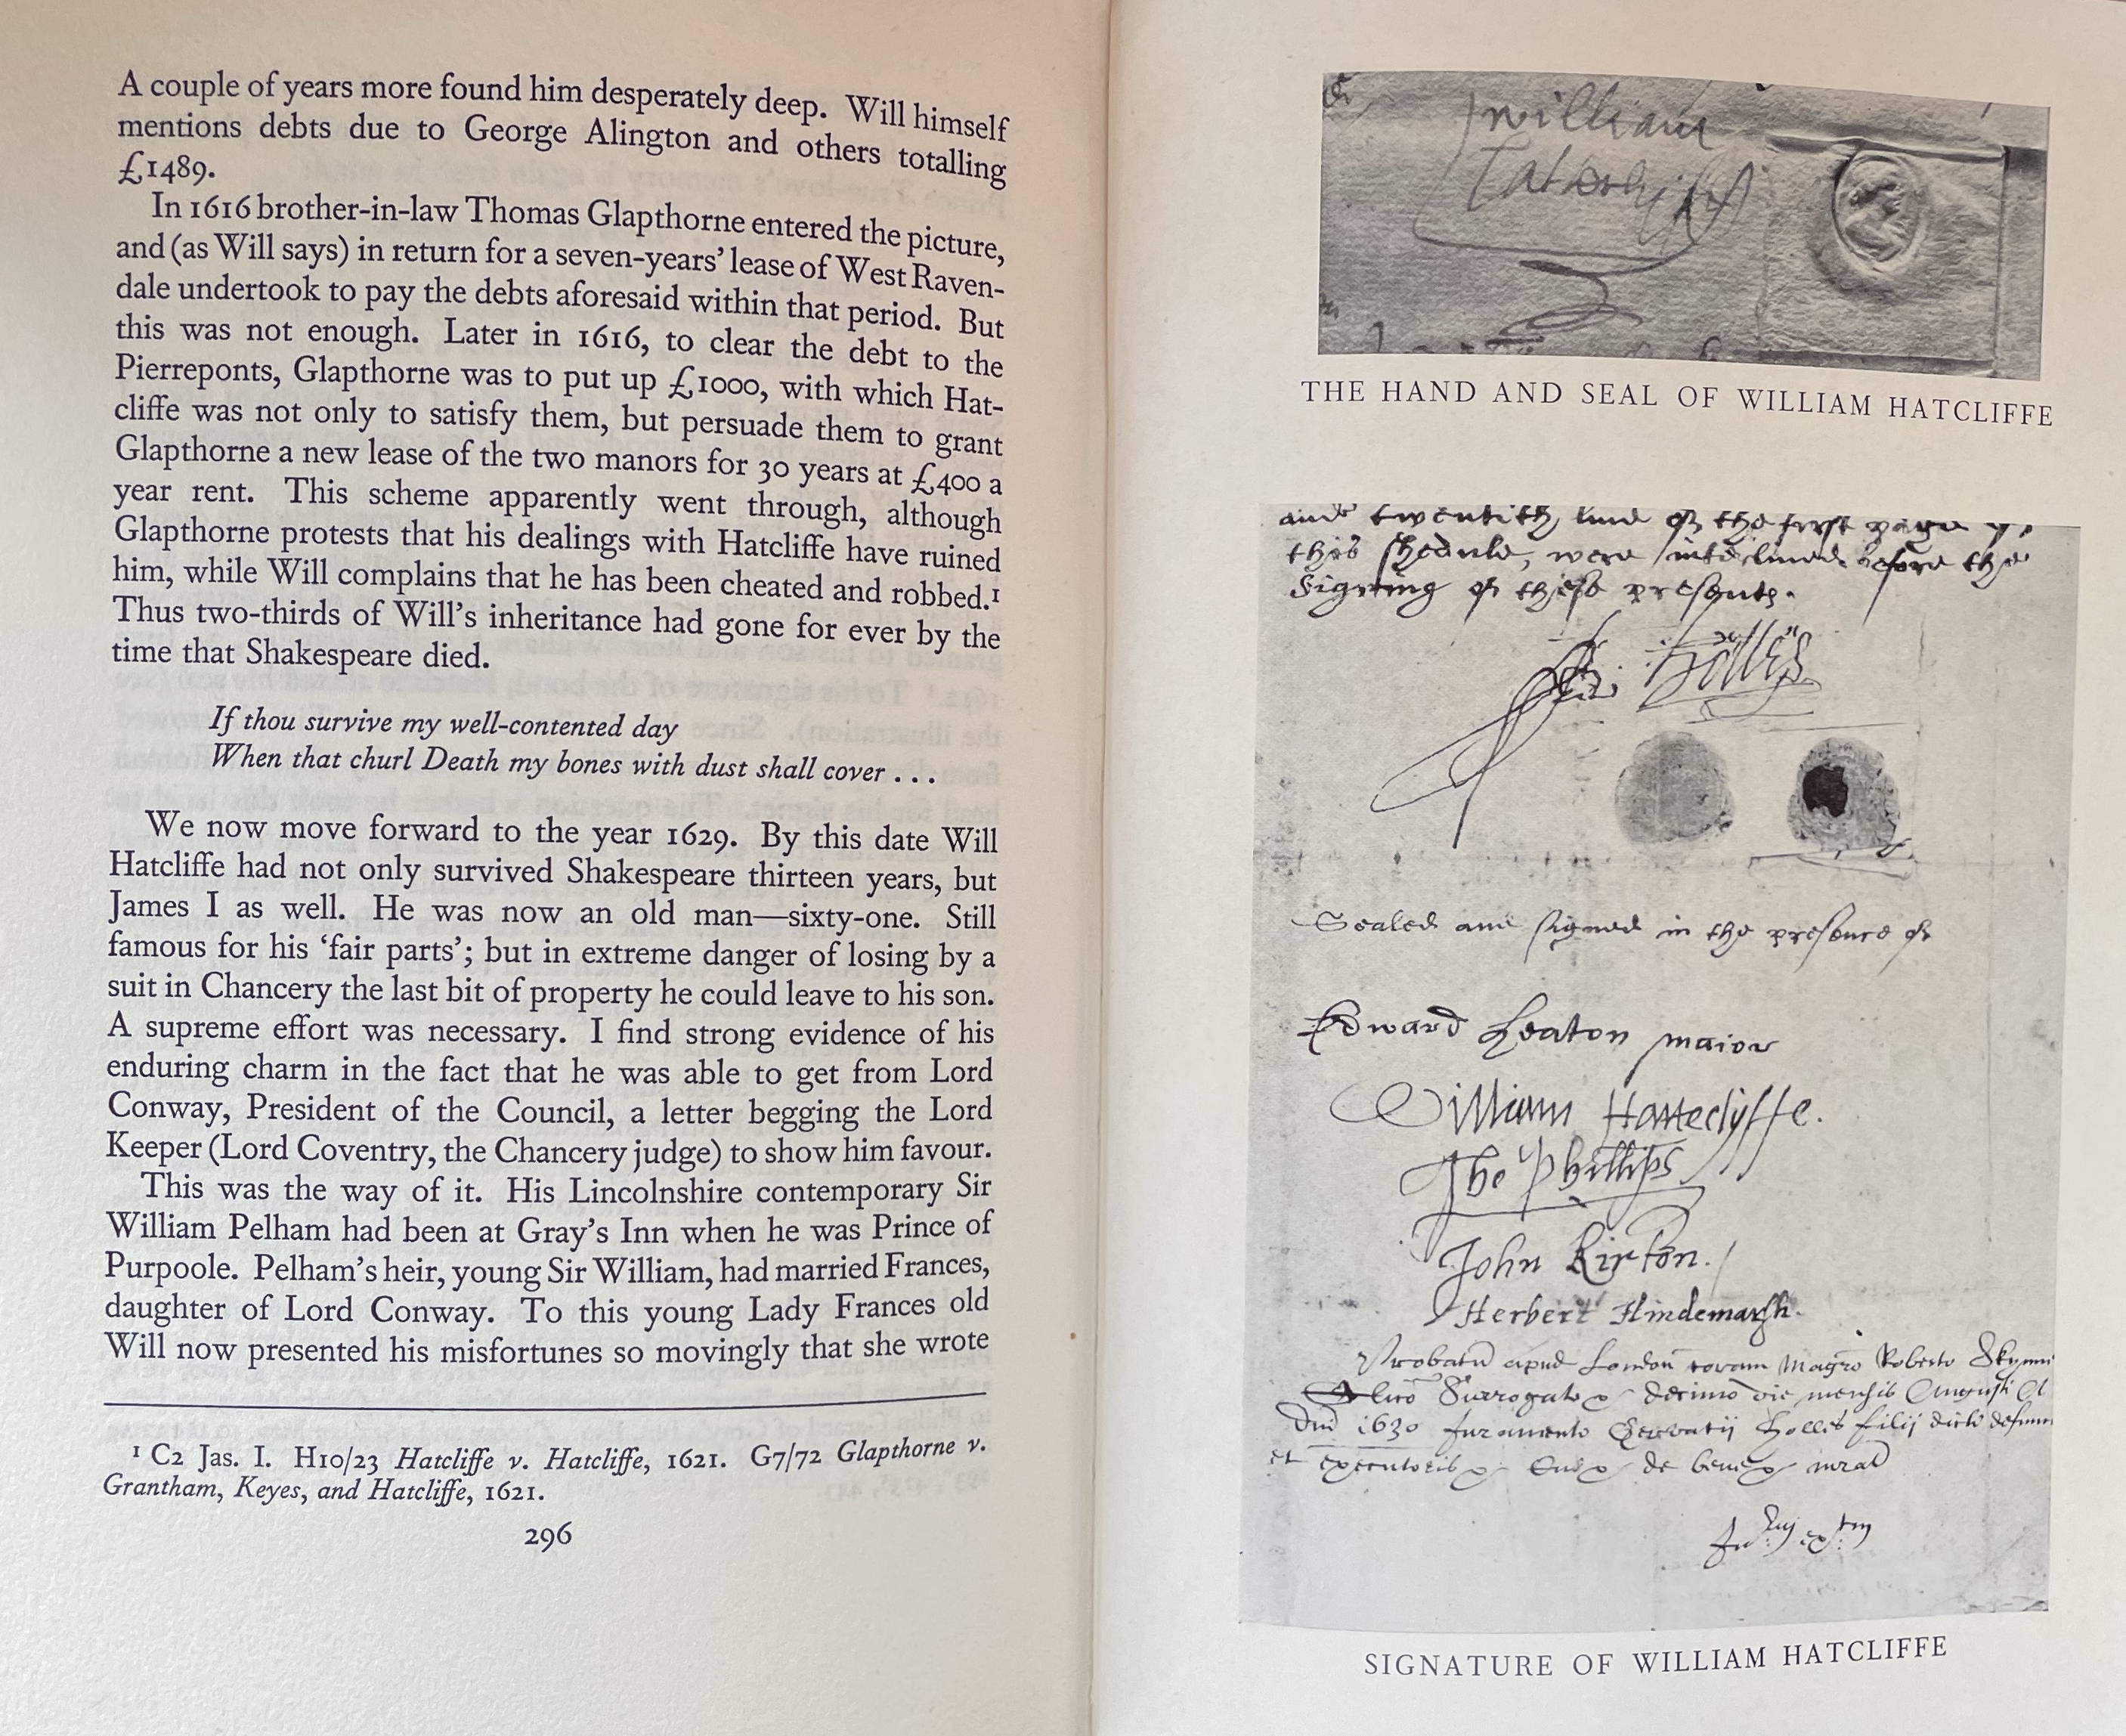 A couple of years more found him desperately deep. Will himself
mentions debts due to George Alington and others totalling
£1489.
In 1616 brother-in-law Thomas Glapthorne entered the picture,
and (as Will says) in return for a seven-years' lease of West Raven-
dale undertook to pay the debts aforesaid within that period. But
this was not enough. Later in 1616, to clear the debt to the
Pierreponts, Glapthorne was to put up £1000, with which Hat-
cliffe was not only to satisfy them, but persuade them to grant
Glapthorne a new lease of the two manors for 30 years at £400 a
year rent. This scheme apparently went through, although
Glapthorne protests that his dealings with Hatcliffe have ruined
him, while Will complains that he has been cheated and robbed.¹
Thus two-thirds of Will's inheritance had gone for ever by the
time that Shakespeare died.
If thou survive my well-contented day
When that churl Death my bones with dust shall cover . . .
We now move forward to the year 1629. By this date Will
Hatcliffe had not only survived Shakespeare thirteen years, but
James I as well. He was now an old man—sixty-one. Still
famous for his 'fair parts'; but in extreme danger of losing by a
suit in Chancery the last bit of property he could leave to his son.
A supreme effort was necessary. I find strong evidence of his
enduring charm in the fact that he was able to get from Lord
Conway, President of the Council, a letter begging the Lord
Keeper (Lord Coventry, the Chancery judge) to show him favour.
This was the way of it. His Lincolnshire contemporary Sir
William Pelham had been at Gray's Inn when he was Prince of
Purpoole. Pelham's heir, young Sir William, had married Frances,
daughter of Lord Conway. To this young Lady Frances old
Will now presented his misfortunes so movingly that she wrote
¹ C2 Jas. I. H10/23 Hatcliffe v. Hatcliffe, 1621. G7/72 Glapthorne v.
Grantham, Keyes, and Hatcliffe, 1621.
296
william
THE HAND AND SEAL OF WILLIAM HATCLIFFE
and twentith line of the first page
this shedule, were interlined before the
signing of these presents.
Holles
Sealed and signed in the presence of
Edward Leaton maior
William Hatteclyffe.
Tho Phillips
John Kirton.
Herbert Hindemarsh.
Probatum apud London coram Magro Roberto
Surrogato decimo die mensis Augusti
Dni 1630 Juramento Gervatij Holles filij dicti
et executoris de bene
SIGNATURE OF WILLIAM HATCLIFFE